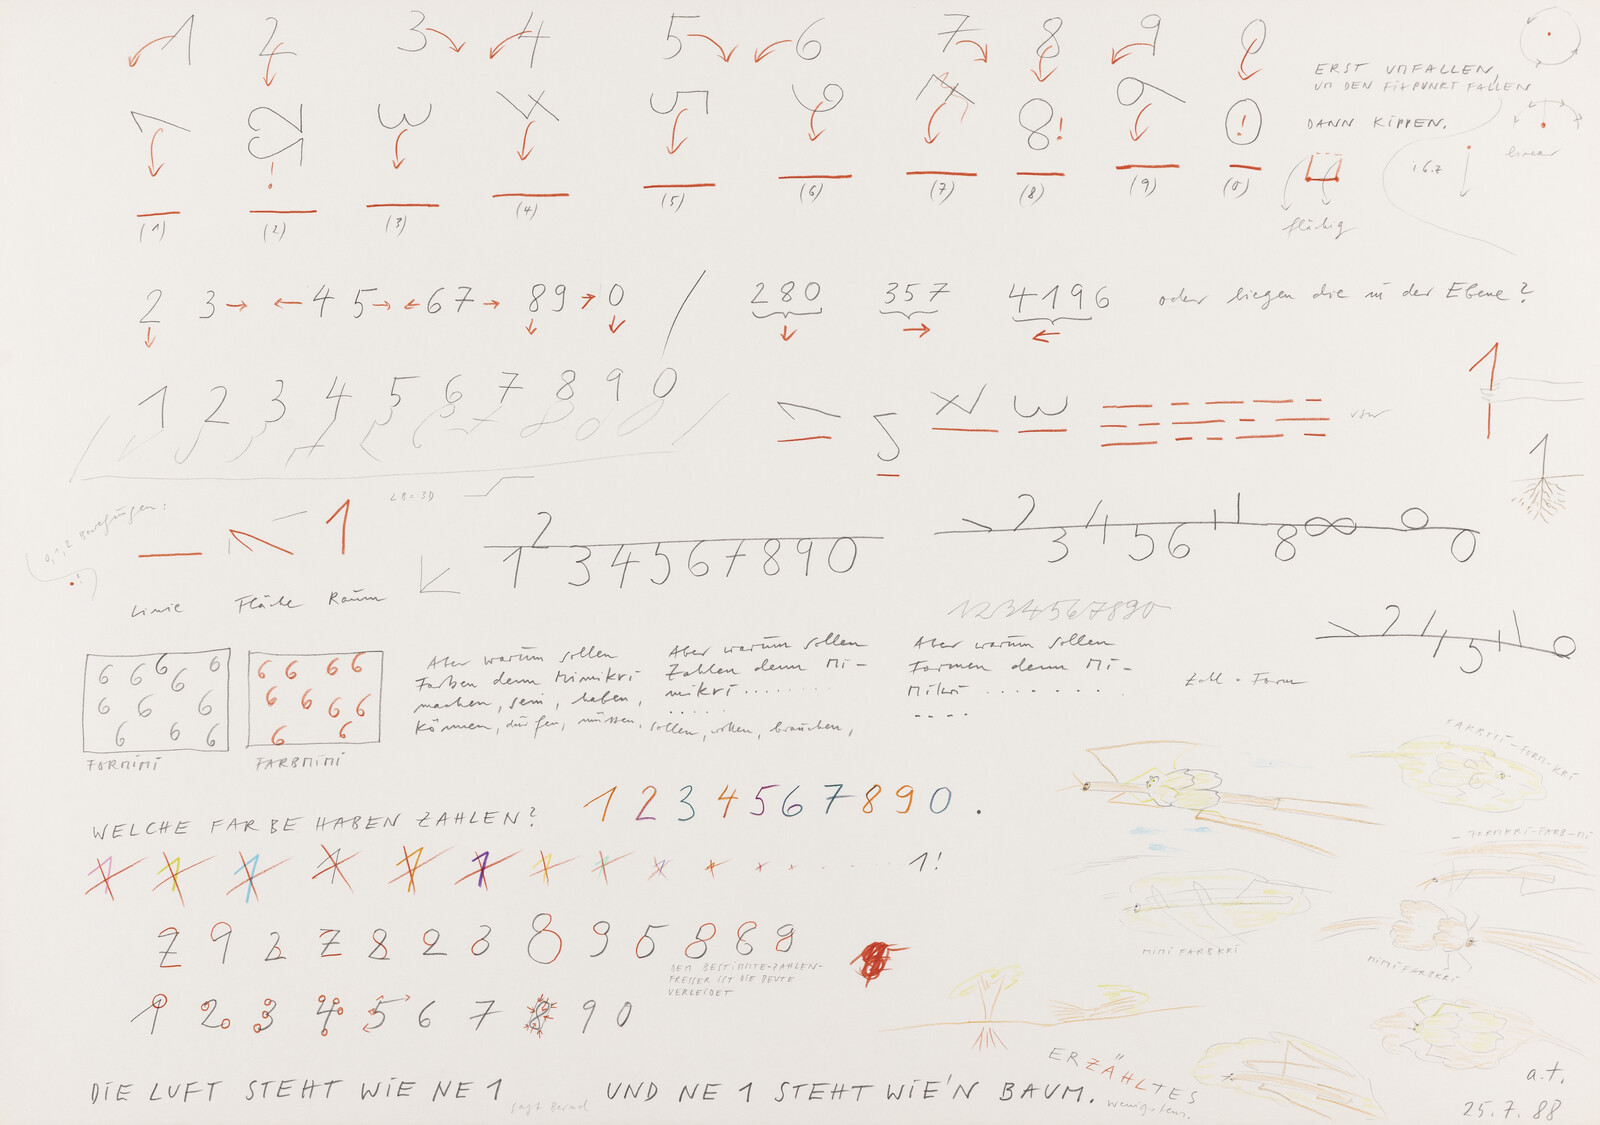 1 2 3 4 5 6 7 8 9 0
ERST UMFALLEN,
UM DEN FIXPUNKT FALLEN
1 2 3 4 5 6 7 8! 9 0!
DANN KIPPEN.
linear
(1) (2) (3) (4) (5) (6) (7) (8) (9) (0)
flächig
2 3 4 5 6 7 8 9 0 / 280 357 4196 oder liegen die in der Ebene?
1
1 2 3 4 5 6 7 8 9 0
1 5 4 3
1
0,1,2 Bewegungen:
1 1
Linie Fläche Raum
1 2 3 4 5 6 7 8 9 0
1 2 3 4 5 6 7 1 8 ∞ 9 0
1 2 3 4 5 6 7 8 9 0
6 6 6 6 6 6 6 6 6 6 6
FORMIMI
6 6 6 6 6 6 6 6 6 6
FARBMIMI
Aber warum sollen
Farben denn Mimikri
machen, sein, haben,
können, dürfen, müssen, sollen, wollen, brauchen,
Aber warum sollen
Zahlen denn Mi-
mikri ........
.....
Aber warum sollen
Formen denn Mi-
Mikri ........
----
Zahl = Form
WELCHE FARBE HABEN ZAHLEN? 1 2 3 4 5 6 7 8 9 0 .
1 1 1 1 1 1 1 1 1 1!
2 9 2 2 2 2 3 8 9 5 8 6 9
DEM BESTIMMTE-ZAHLEN-
FRESSER IST DIE BEUTE
VERLEIDET
1 2 3 4 5 6 7 8 9 0
FARBMI-FORM-KRI
-FORMKRI-FARB-MI
MIMI FARBKRI
MIMIFARBKRI
DIE LUFT STEHT WIE NE 1 UND NE 1 STEHT WIE'N BAUM.
sagt Bernd
ERZÄHLTES
wenigstens.
a.t.
25.7.88